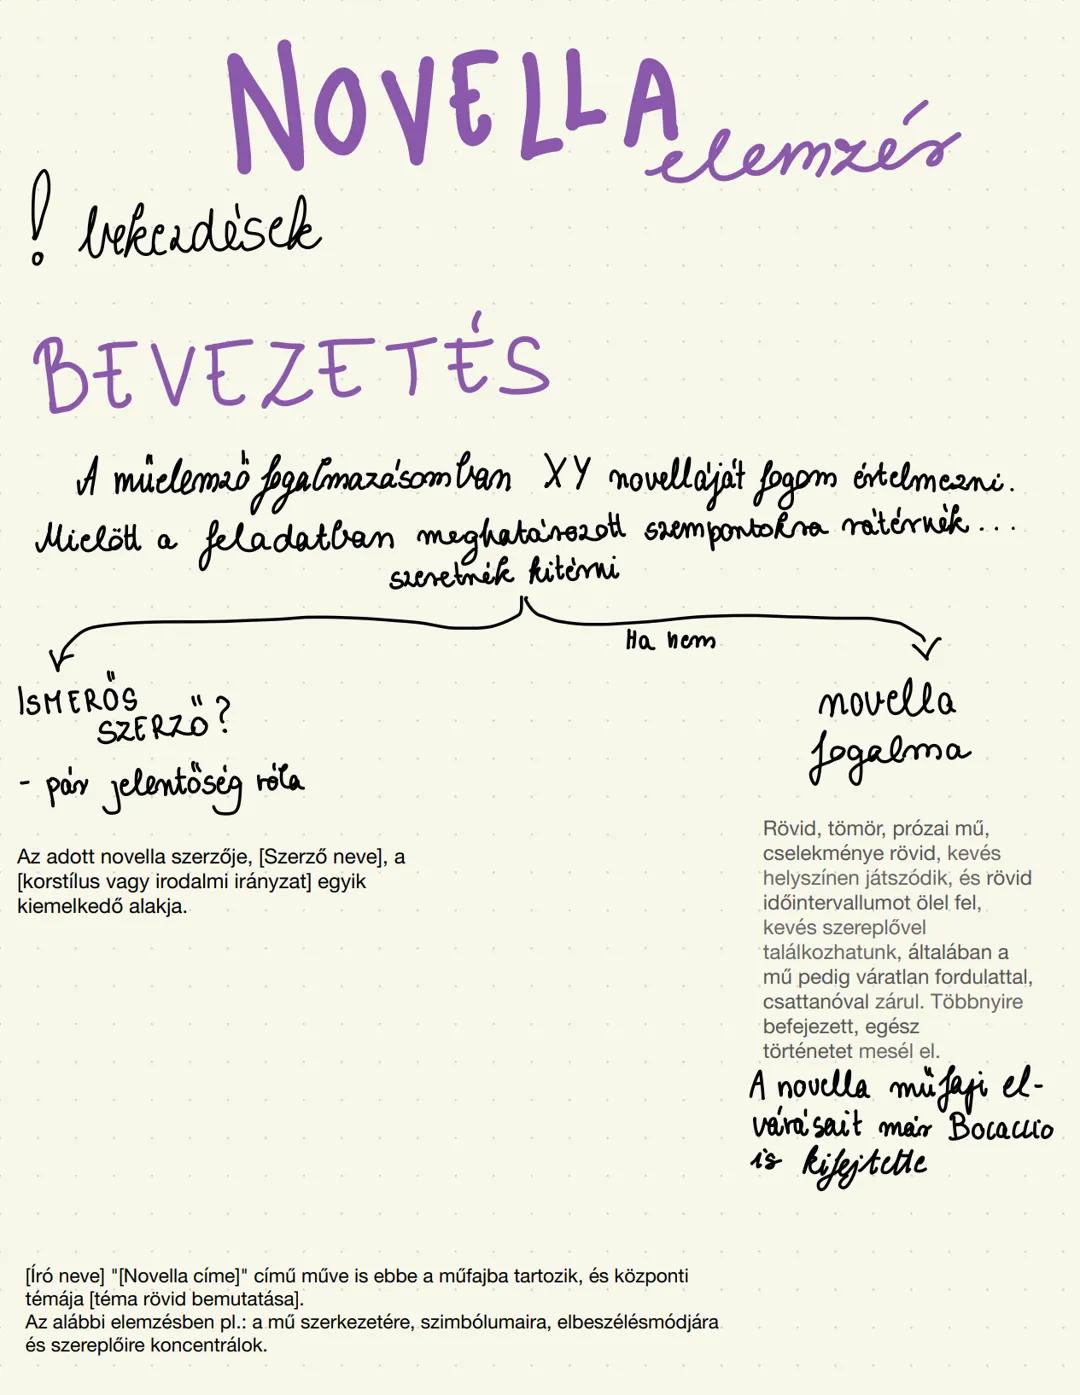 NOVELLA elemzés
! bekezdések
BEVEZETÉS
A műelemző fogalmazásomban XY novelláját fogom értelmezni.
Mielőtt a feladatban meghatározott szempontokra rátérnék...
szeretnék kitérni
Ha nem
ISMERŐS
SZERZŐ?
- pár jelentőség róla
Az adott novella szerzője, [Szerző neve], a
[korstílus vagy irodalmi irányzat] egyik
kiemelkedő alakja.
novella
fogalma
Rövid, tömör, prózai mű,
cselekménye rövid, kevés
helyszínen játszódik, és rövid
időintervallumot ölel fel,
kevés szereplővel
találkozhatunk, általában a
mű pedig váratlan fordulattal,
csattanóval zárul. Többnyire
befejezett, egész
történetet mesél el.
A novella műfaji el-
várásait már Bocaccio
is kifejtette
[Író neve] "[Novella címe]" című műve is ebbe a műfajba tartozik, és központi
témája [téma rövid bemutatása].
Az alábbi elemzésben pl.: a mű szerkezetére, szimbólumaira, elbeszélésmódjára
és szereplőire koncentrálok.